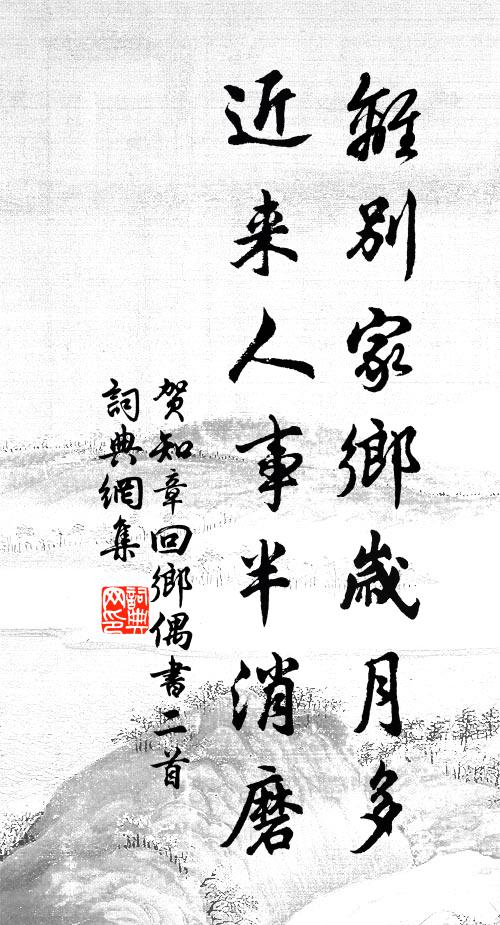 離別家鄉歲月多
近来人事半消磨
賀知章回鄉偶書二首
詞典網集
詞典
网印